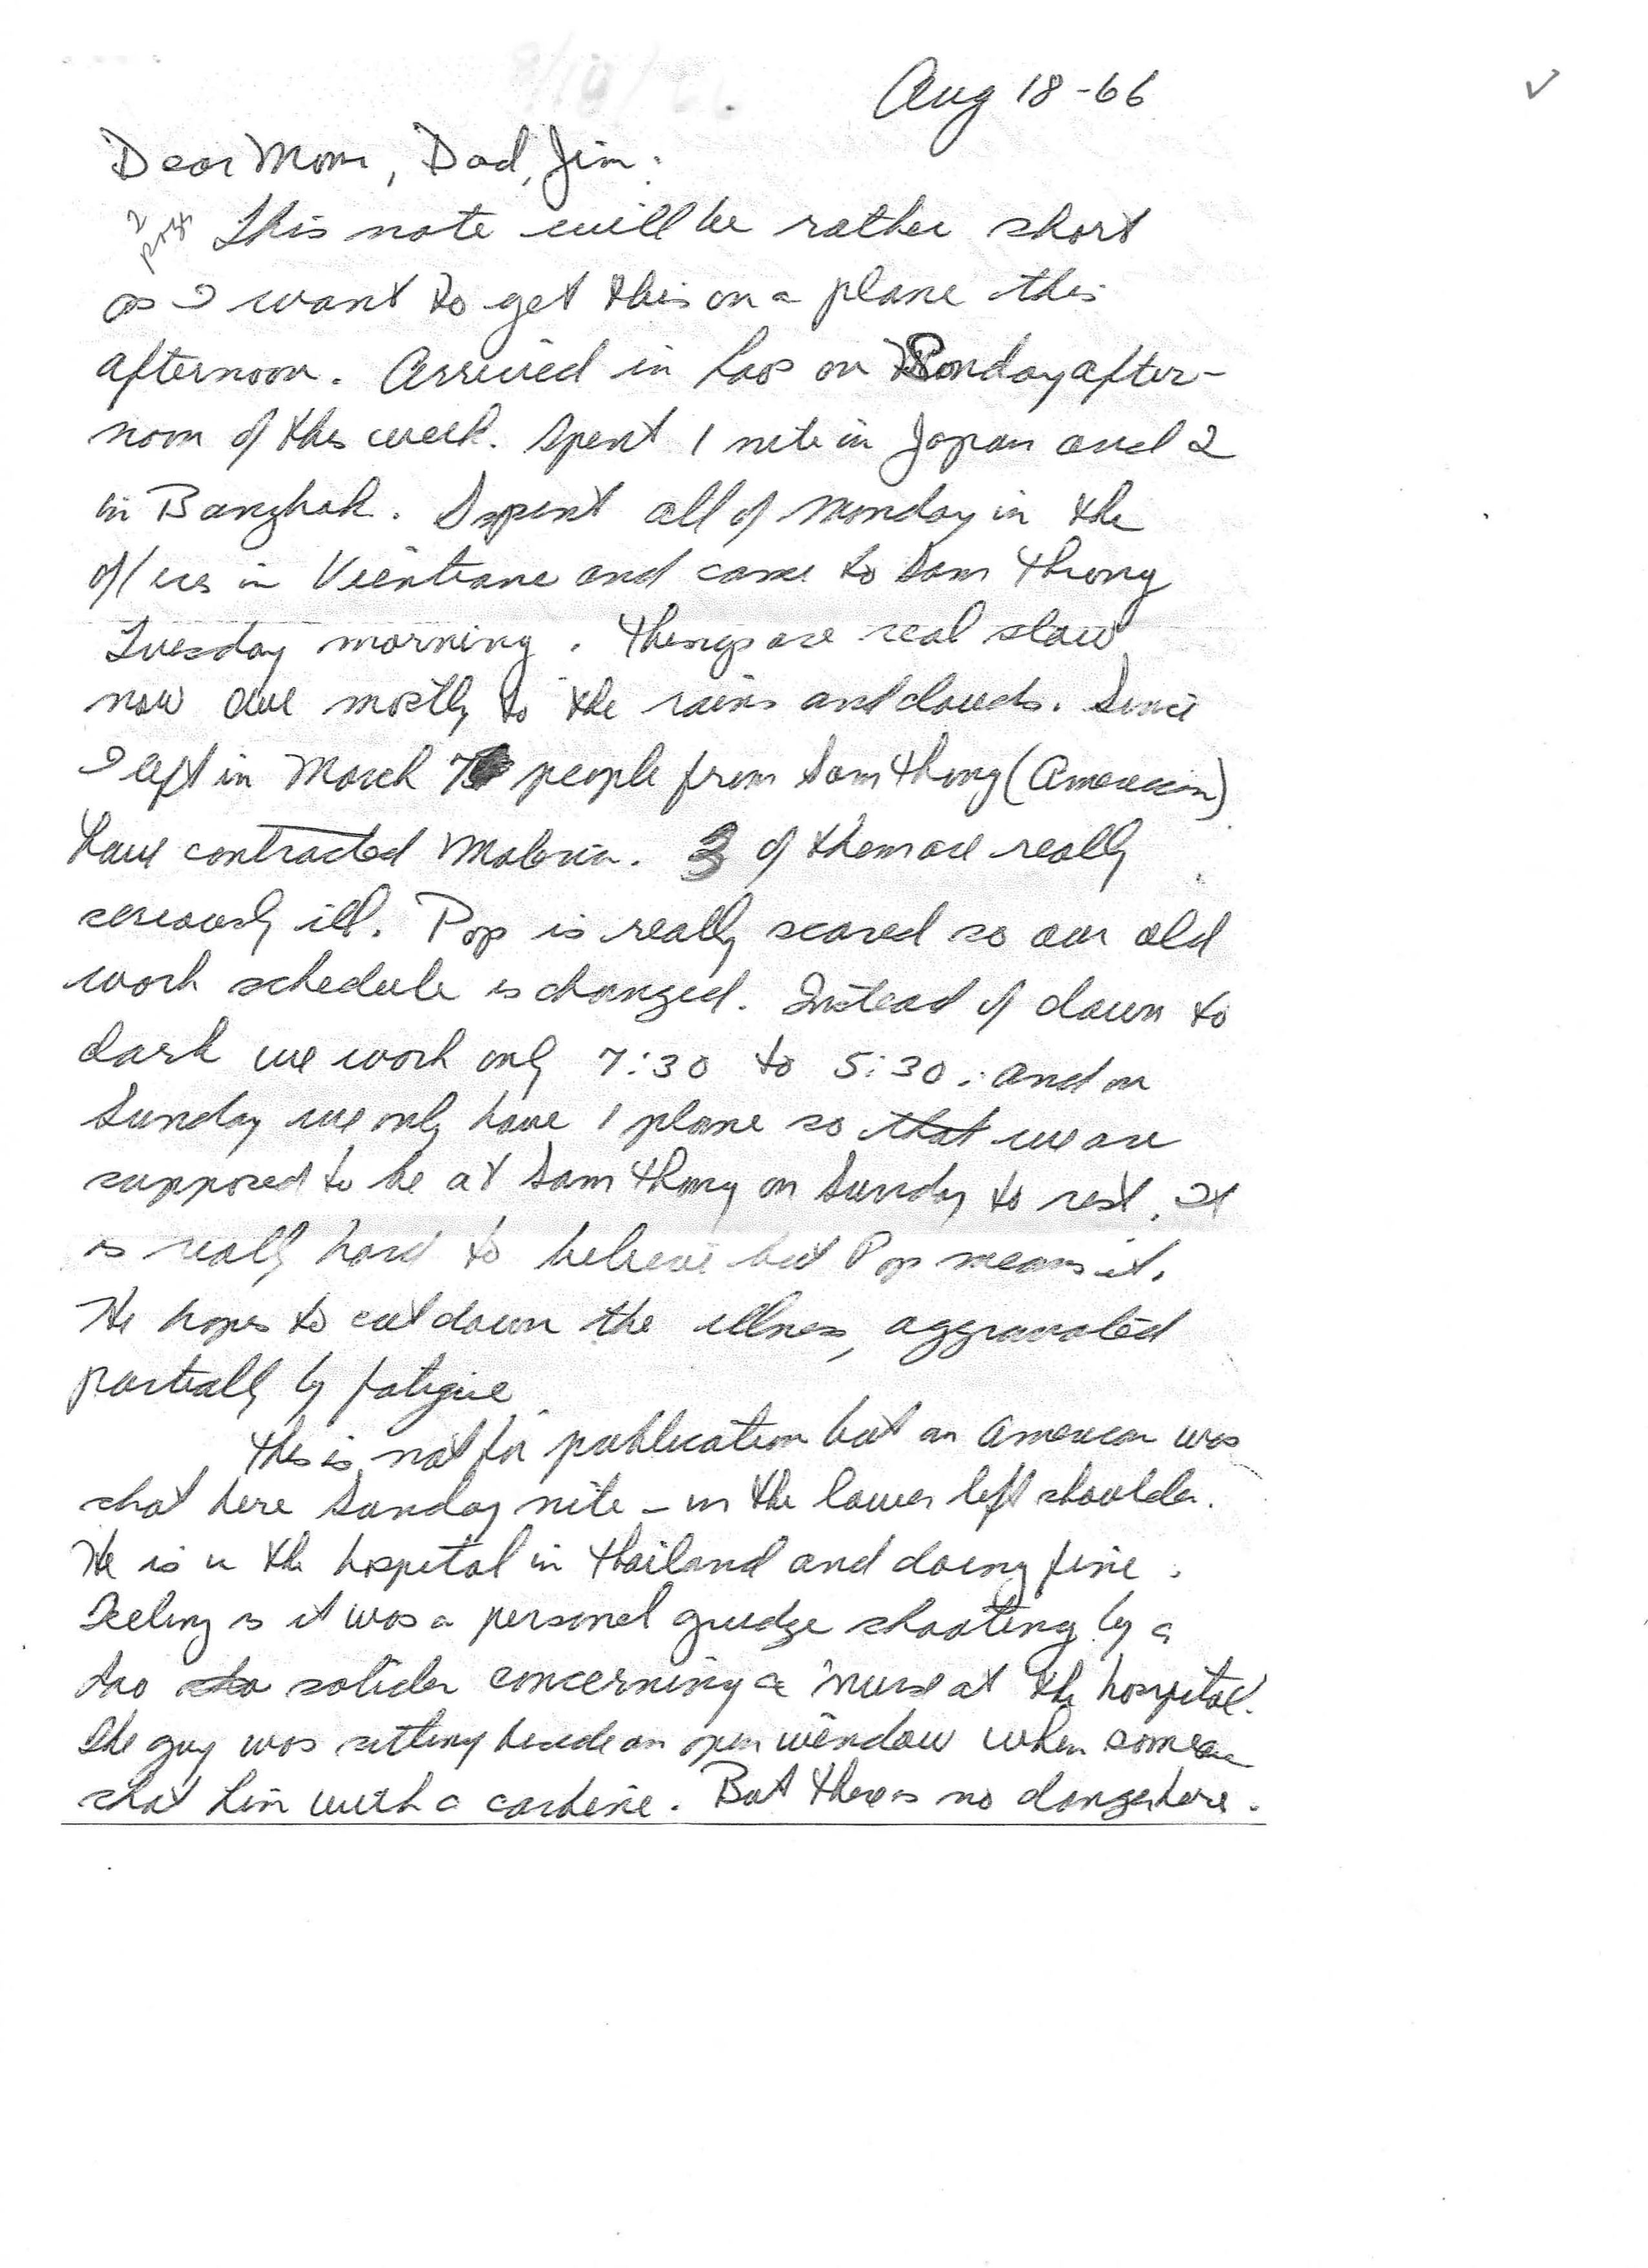 Aug 18-66
Dear Mom, Dad, Jim:
2 pgs
This note will be rather short
as I want to get this on a plane this
afternoon. Arrived in Laos on Sonday after-
noon of this week. Spent 1 nite in Japan and 2
in Bangkok. Spent all of Monday in the
office in Vientiane and came to Sam Thong
Tuesday morning. Things are real slow
now due mostly to the rains and clouds. Since
I left in March 7 people from Sam Thong (American)
have contracted Malaria. 3 of them are really
seriously ill. Pop is really scared so our old
work schedule is changed. Instead of dawn to
dark we work only 7:30 to 5:30. and on
Sunday we only have 1 plane so that we are
supposed to be at Sam Thong on Sunday to rest. It
is really hard to believe but Pop means it.
He hopes to cut down the illness, aggravated
partially by fatigue.
This is not for publication but an American was
shot here Sunday nite - in the lower left shoulder.
He is in the hospital in Thailand and doing fine.
Feeling is it was a personel grudge shooting by a
Lao solider concerning a nurse at the hospital.
The guy was sitting beside an open window when someone
shot him with a carbine. But there is no danger here.